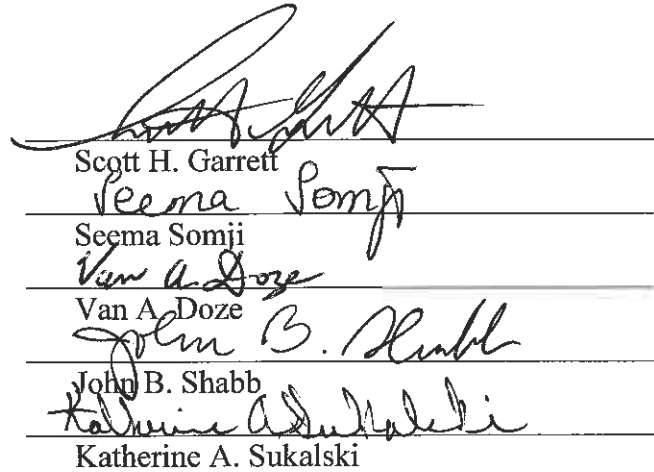 Scott H. Garrett
Scott H. Garrett
Seema Somji
Seema Somji
Van A. Doze
Van A. Doze
John B. Shabb
John B. Shabb
Katherine A Sukalski
Katherine A. Sukalski